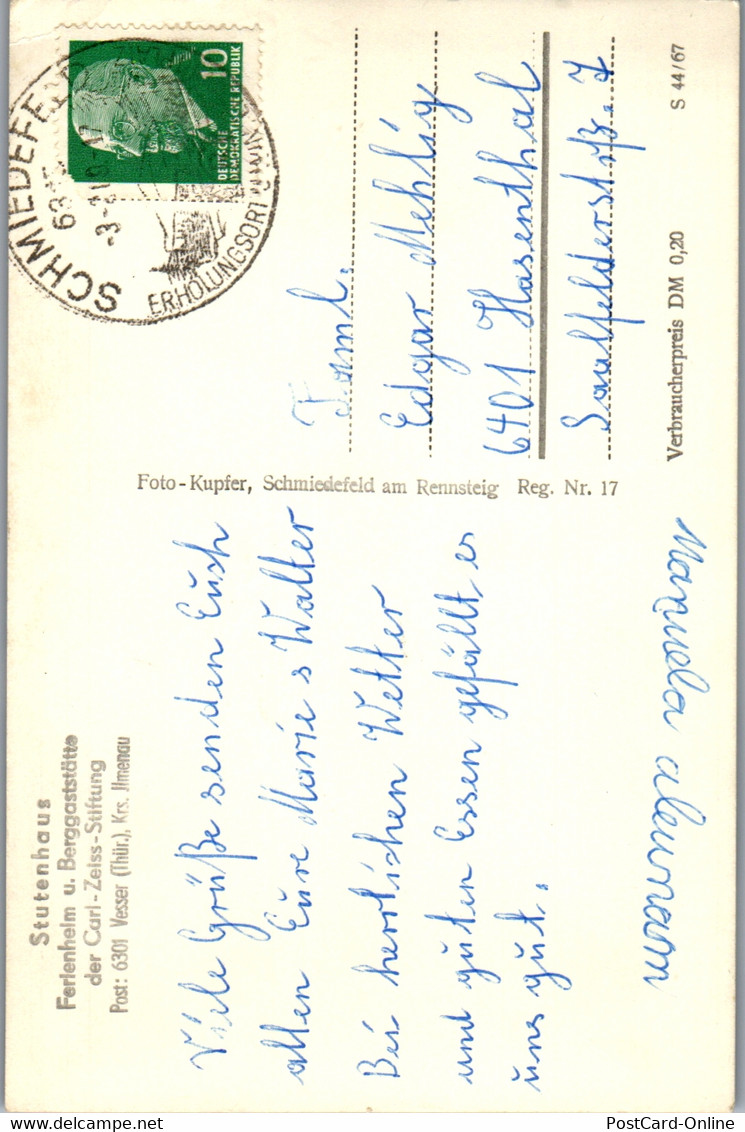 Stutenhaus
Ferienheim u. Berggaststätte
der Carl-Zeiss-Stiftung
Post: 6301 Vesser (Thür.), Krs. Jlmenau
Viele Grüße senden Euch
allen Eure Marie s Walter
Bei herrlichen Wetter
und guten Essen gefällt es
uns gut.
Manuela
Foto-Kupfer, Schmiedefeld am Rennsteig Reg. Nr. 17
SCHMIEDEFELD
ERHOLUNGSORT
10
DEUTSCHE
DEMOKRATISCHE REPUBLIK
Faml.
Edgar Mehlig
6401 Hasenthal
Saalfelderstrß. 7
Verbraucherpreis DM 0,20
S 44/67
PostCard-Online